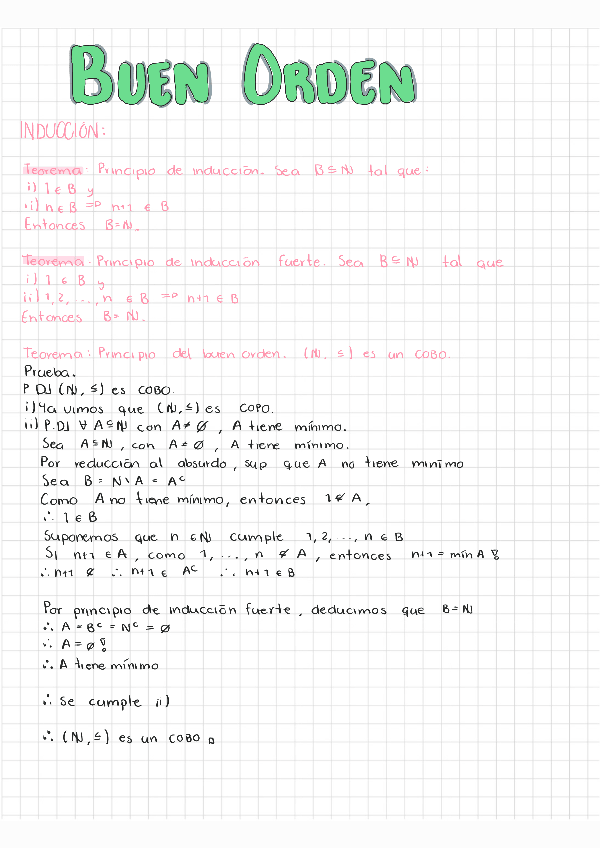 BUEN ORDEN
INDUCCIÓN:
Teorema: Principio de inducción. Sea B ⊆ ℕ tal que:
i) 1 ∈ B y
ii) n ∈ B ⇒ n+1 ∈ B
Entonces B = ℕ.
Teorema: Principio de inducción fuerte. Sea B ⊆ ℕ tal que
i) 1 ∈ B y
ii) 1, 2, ..., n ∈ B ⇒ n+1 ∈ B
Entonces B = ℕ.
Teorema: Principio del buen orden. (ℕ, ≤) es un COBO.
Prueba.
P.D| (ℕ, ≤) es COBO.
i) Ya vimos que (ℕ, ≤) es COPO.
ii) P.D| ∀ A ⊆ ℕ con A ≠ ∅, A tiene mínimo.
Sea A ⊆ ℕ, con A ≠ ∅, A tiene mínimo.
Por reducción al absurdo, sup que A no tiene mínimo
Sea B = ℕ \ A = Aᶜ
Como A no tiene mínimo, entonces 1 ∉ A,
∴ 1 ∈ B
Suponemos que n ∈ ℕ cumple 1, 2, ..., n ∈ B
Si n+1 ∈ A, como 1, ..., n ∉ A, entonces n+1 = min A !
∴ n+1 ∉ ∴ n+1 ∈ Aᶜ ∴ n+1 ∈ B
Por principio de inducción fuerte, deducimos que B = ℕ
∴ A = Bᶜ = ℕᶜ = ∅
∴ A = ∅ !
∴ A tiene mínimo
∴ Se cumple ii)
∴ (ℕ, ≤) es un COBO □